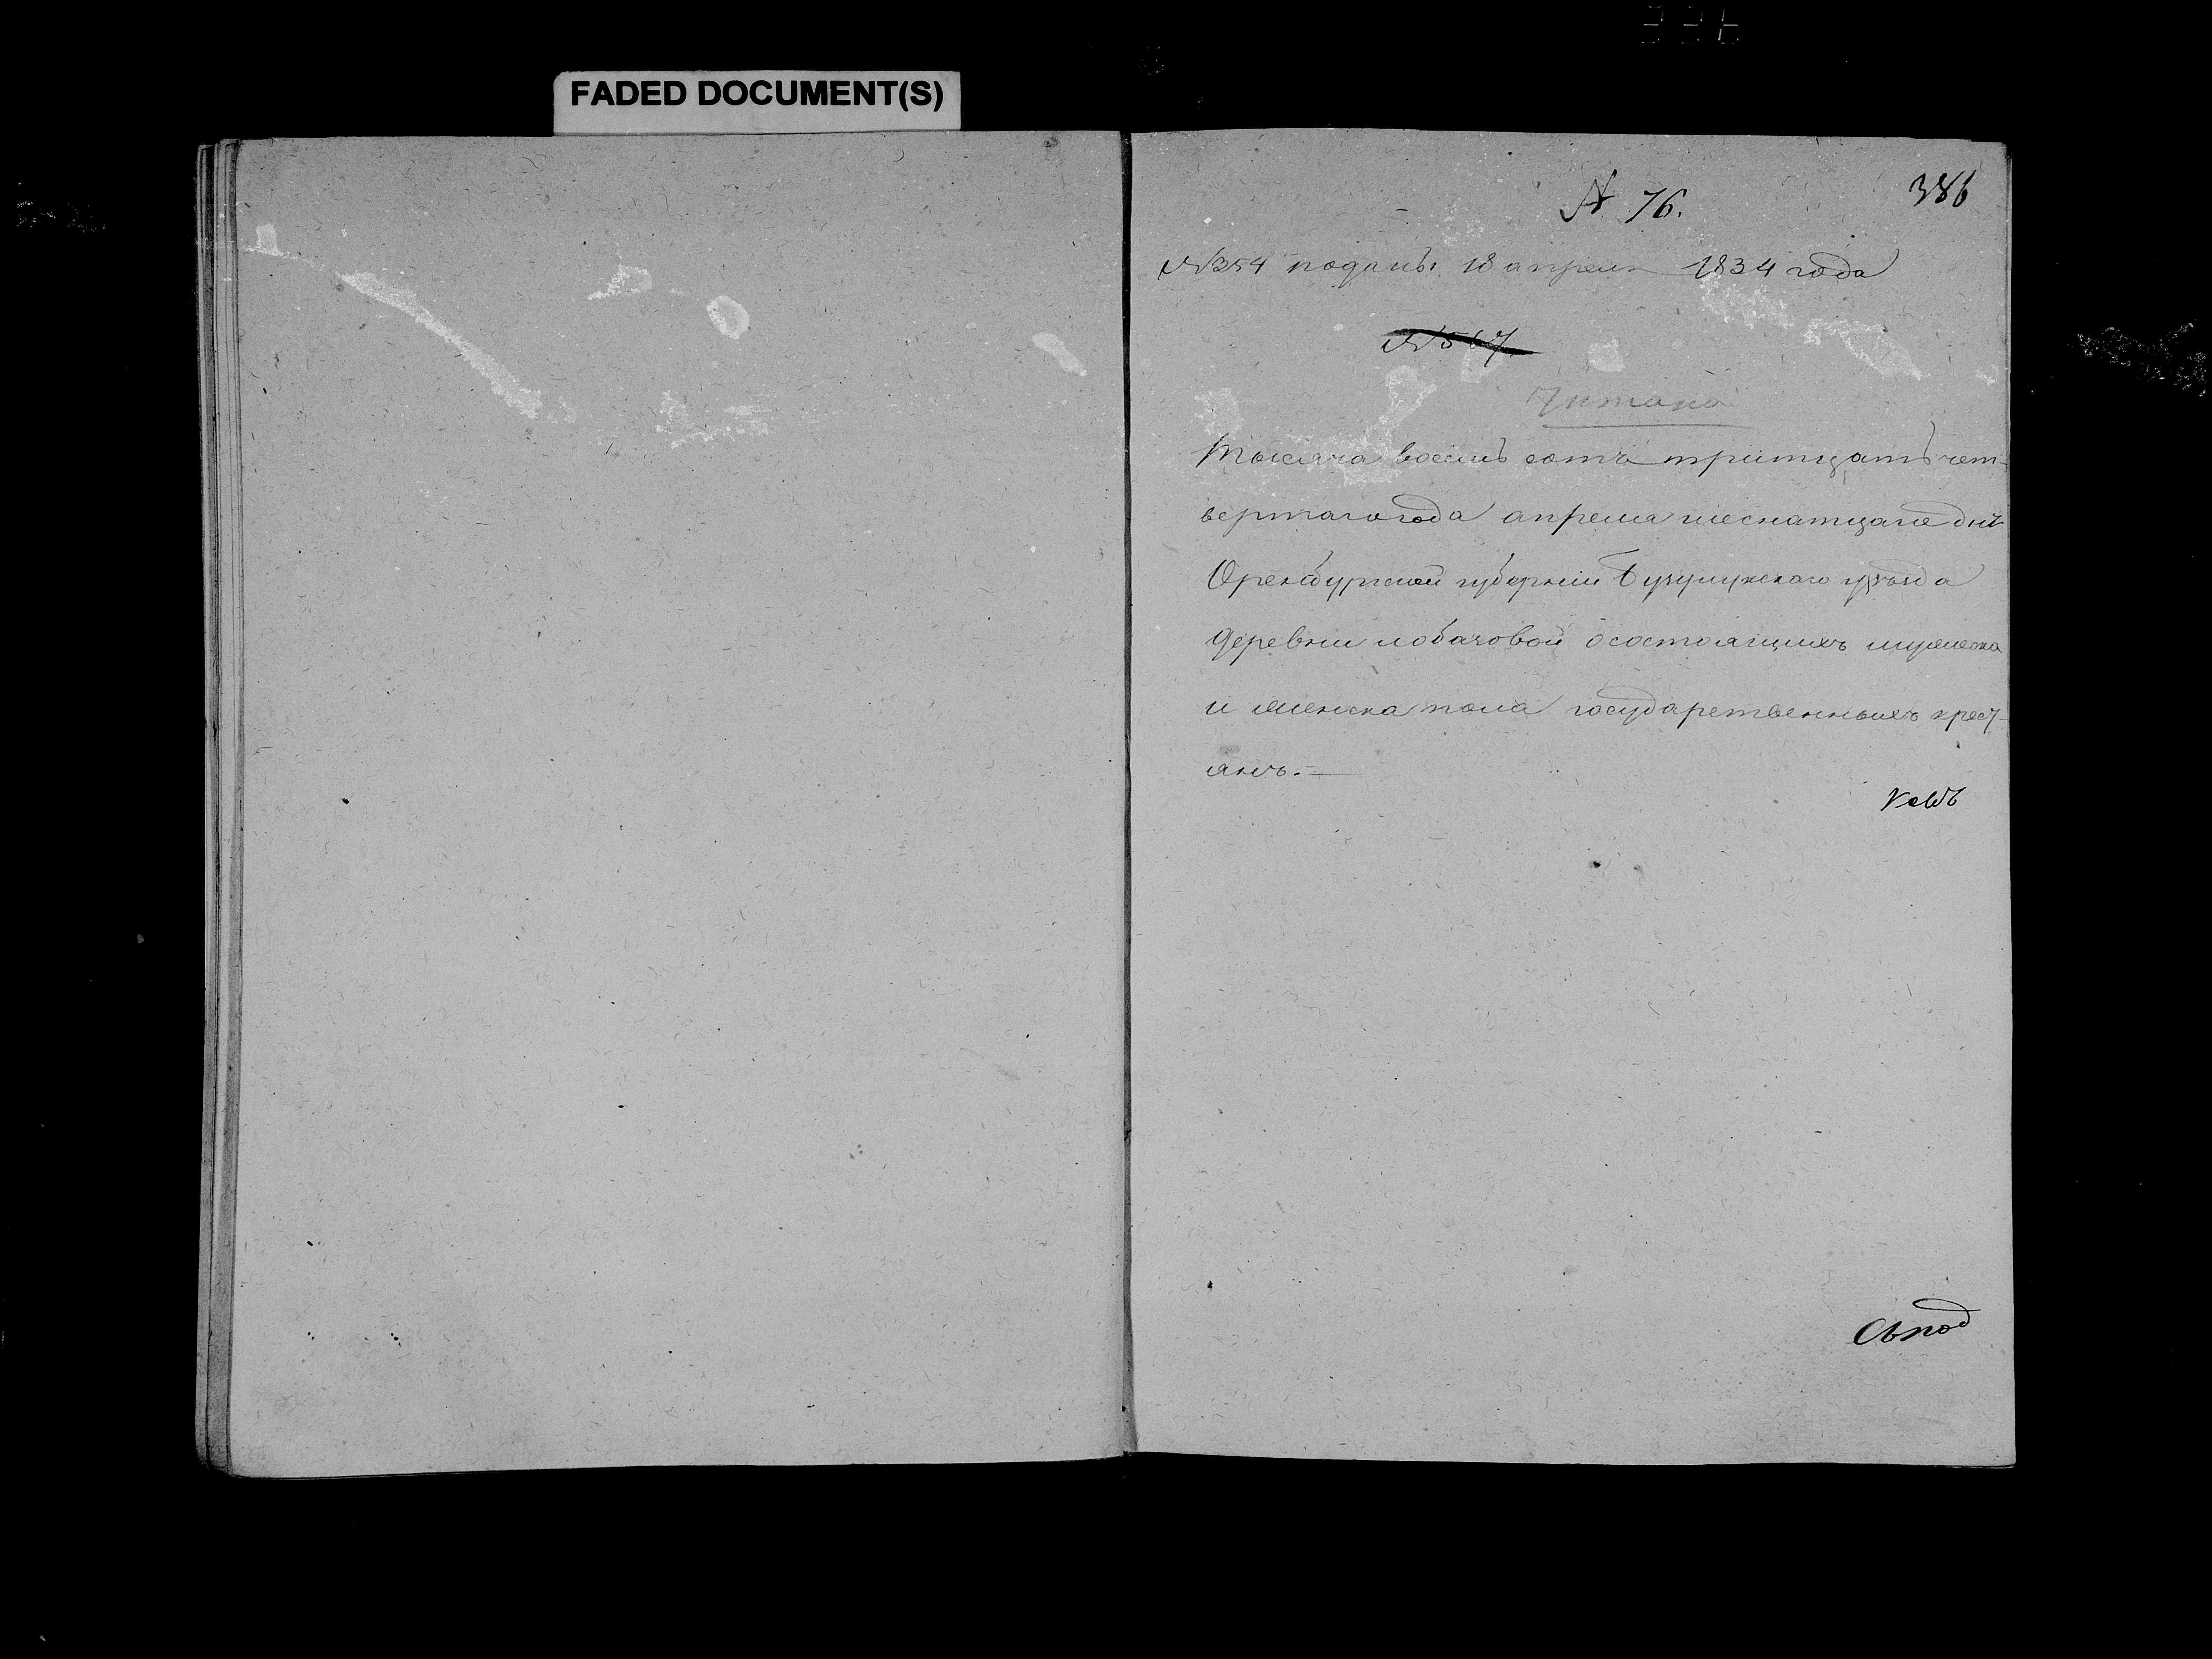 FADED DOCUMENT(S)
№ 76.
386
№354 поданы 18 апреля 1834 года
№567
Читана
Тысяча восемь сотъ тритцать чет-
вертаго года апреля шеснатцаго дня
Оренбургской губернии Бузулукскаго уѣзда
деревни лобазовой о состоящихъ мужеска
и женска пола государственныхъ крест-
янъ.